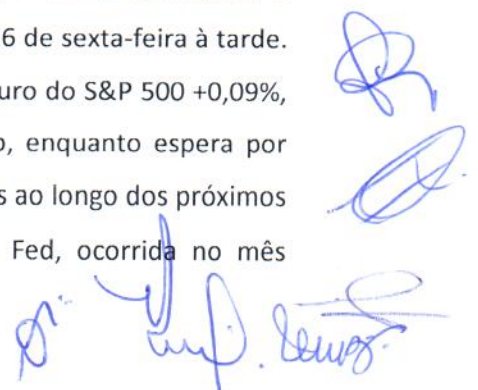 6 de sexta-feira à tarde.
uro do S&P 500 +0,09%,
o, enquanto espera por
s ao longo dos próximos
Fed, ocorrida no mês